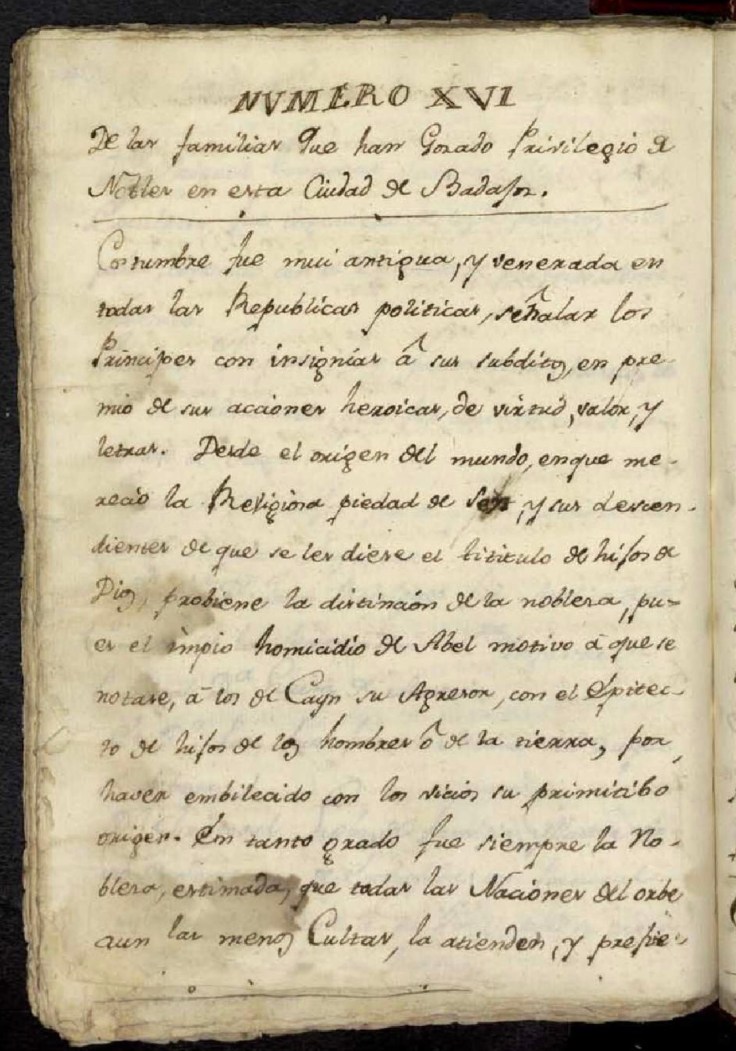 NVMERO XVI
De las familias que han Gozado Privilegio de
Nobles en esta Ciudad de Badajoz.
Costumbre fue mui antigua, y venerada en
todas las Republicas politicas, señalar los
Principes con insignias â sus subditos, en pre-
mio de sus acciones heroicas, de virtud, valor, y
letras. Desde el origen del mundo, en que me-
recio la Religiosa piedad de Set, y sus descen-
dientes de que se les diese el tititulo de hijos de
Dios, probiene la distincion de la nobleza, pu-
es el impio homicidio de Abel motivo â que se
notase, â los de Cayn su Agresor, con el Epitec-
to de hijos de los hombres ô de la tierra, por
haver embilecido con los vicios su primitibo
origen. En tanto grado fue siempre la No-
bleza, estimada, que todas las Naciones del orbe
aun las menos Cultas, la atienden, y prefie-